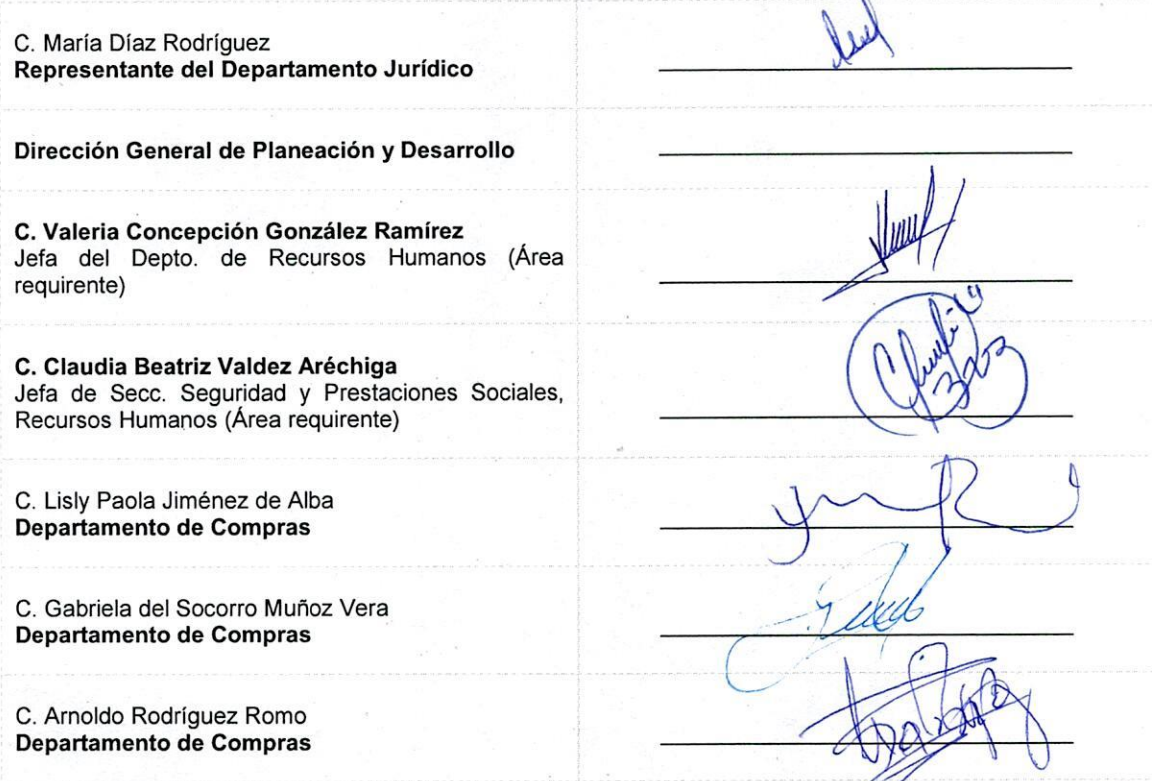 C. María Díaz Rodríguez
Representante del Departamento Jurídico
Dirección General de Planeación y Desarrollo
C. Valeria Concepción González Ramírez
Jefa del Depto. de Recursos Humanos (Área
requirente)
C. Claudia Beatriz Valdez Aréchiga
Jefa de Secc. Seguridad y Prestaciones Sociales,
Recursos Humanos (Área requirente)
C. Lisly Paola Jiménez de Alba
Departamento de Compras
C. Gabriela del Socorro Muñoz Vera
Departamento de Compras
C. Arnoldo Rodríguez Romo
Departamento de Compras